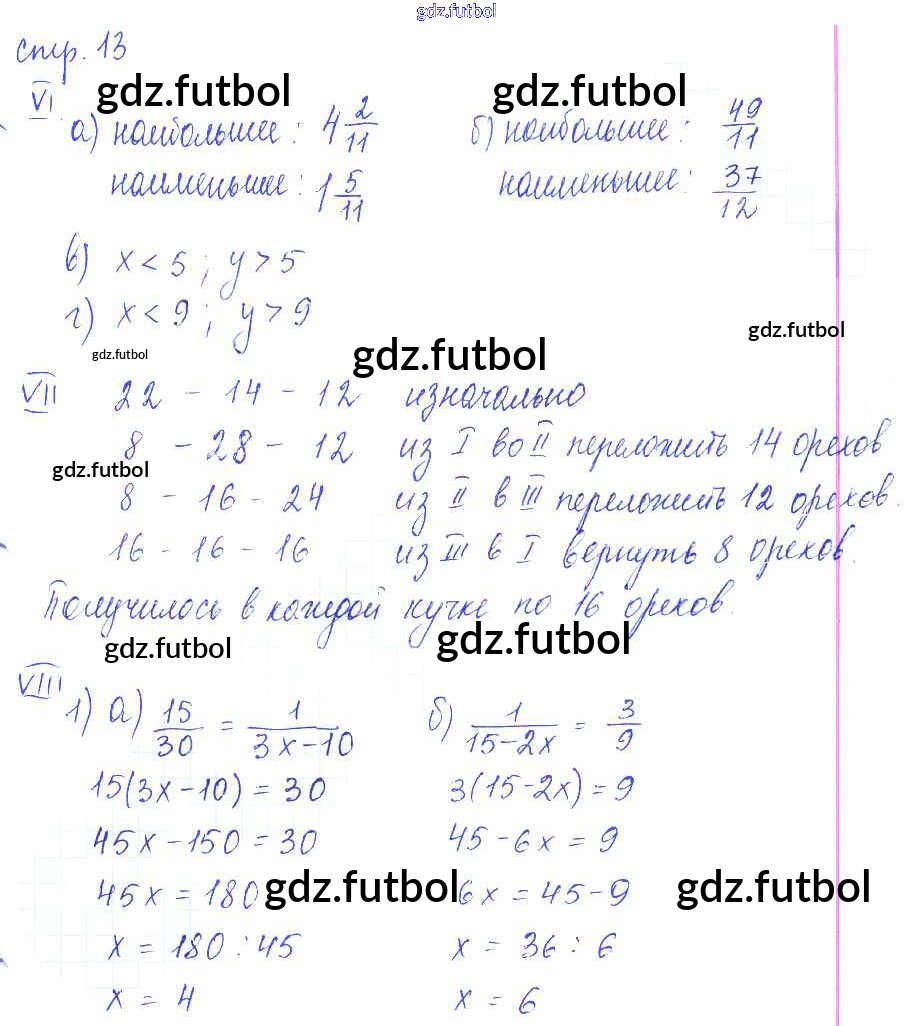 gdz.futbol
стр. 13
VI gdz.futbol gdz.futbol
а) наибольшее: 4 2/11 б) наибольшее: 49/11
наименьшее: 1 5/11 наименьшее: 37/12
в) x < 5; y > 5
г) x < 9; y > 9
gdz.futbol
gdz.futbol gdz.futbol
VII 22 - 14 - 12 изначально
8 - 28 - 12 из I во II переложить 14 орехов
gdz.futbol
8 - 16 - 24 из II в III переложить 12 орехов.
16 - 16 - 16 из III в I вернуть 8 орехов.
Получилось в каждой кучке по 16 орехов.
gdz.futbol gdz.futbol
VIII 1) а) 15/30 = 1/(3x-10) б) 1/(15-2x) = 3/9
15(3x-10) = 30 3(15-2x) = 9
45x - 150 = 30 45 - 6x = 9
45x = 180 gdz.futbol 6x = 45 - 9 gdz.futbol
x = 180 : 45 x = 36 : 6
x = 4 x = 6